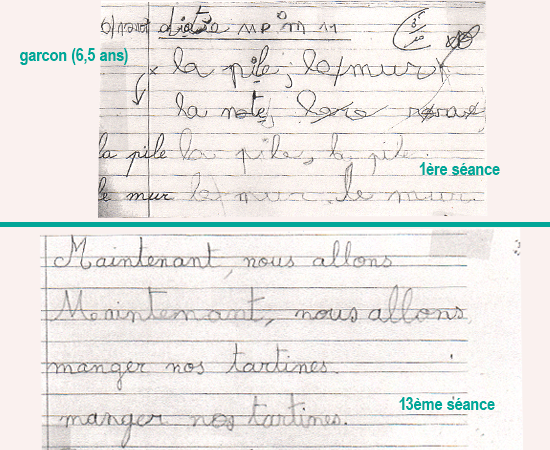 dictée n p m 11
garcon (6,5 ans)
la pile, le mur
la note,
la pile la pile, la pile
1ère séance
le mur le mur. le mur.
Maintenant, nous allons
Maintenant, nous allons
manger nos tartines.
13ème séance
manger nos tartines.